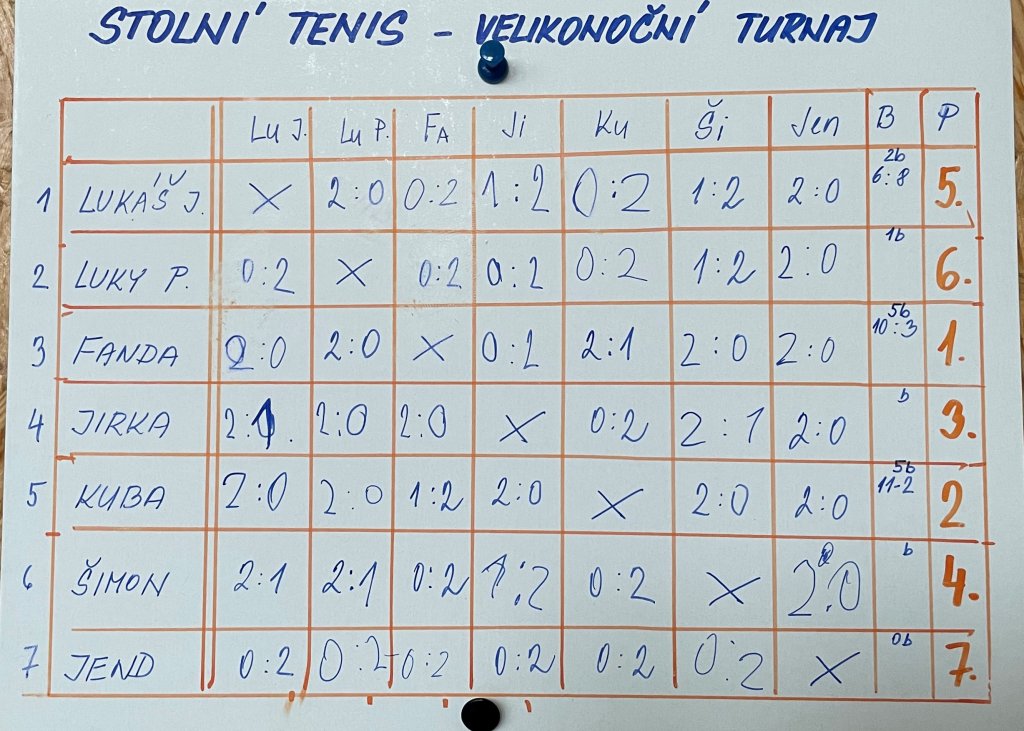 STOLNÍ TENIS – VELIKONOČNÍ TURNAJ
LU J. LU P. FA Ji KU Ši Jen B P
1 LUKÁŠ J. X 2:0 0:2 1:2 0:2 1:2 2:0 2b 6:8 5.
2 LUKY P. 0:2 X 0:2 0:2 0:2 1:2 2:0 1b 6.
3 FANDA 2:0 2:0 X 0:2 2:1 2:0 2:0 5b 10:3 1.
4 JIRKA 2:1. 2:0 2:0 X 0:2 2:1 2:0 b 3.
5 KUBA 2:0 2:0 1:2 2:0 X 2:0 2:0 5b 11-2 2
6 ŠIMON 2:1 2:1 0:2 1:2 0:2 X 2:0 b 4.
7 JEND 0:2 0:2 0:2 0:2 0:2 0:2 X 0b 7.